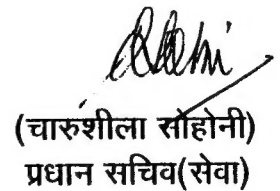 (चारुशीला सोहोनी)
प्रधान सचिव(सेवा)